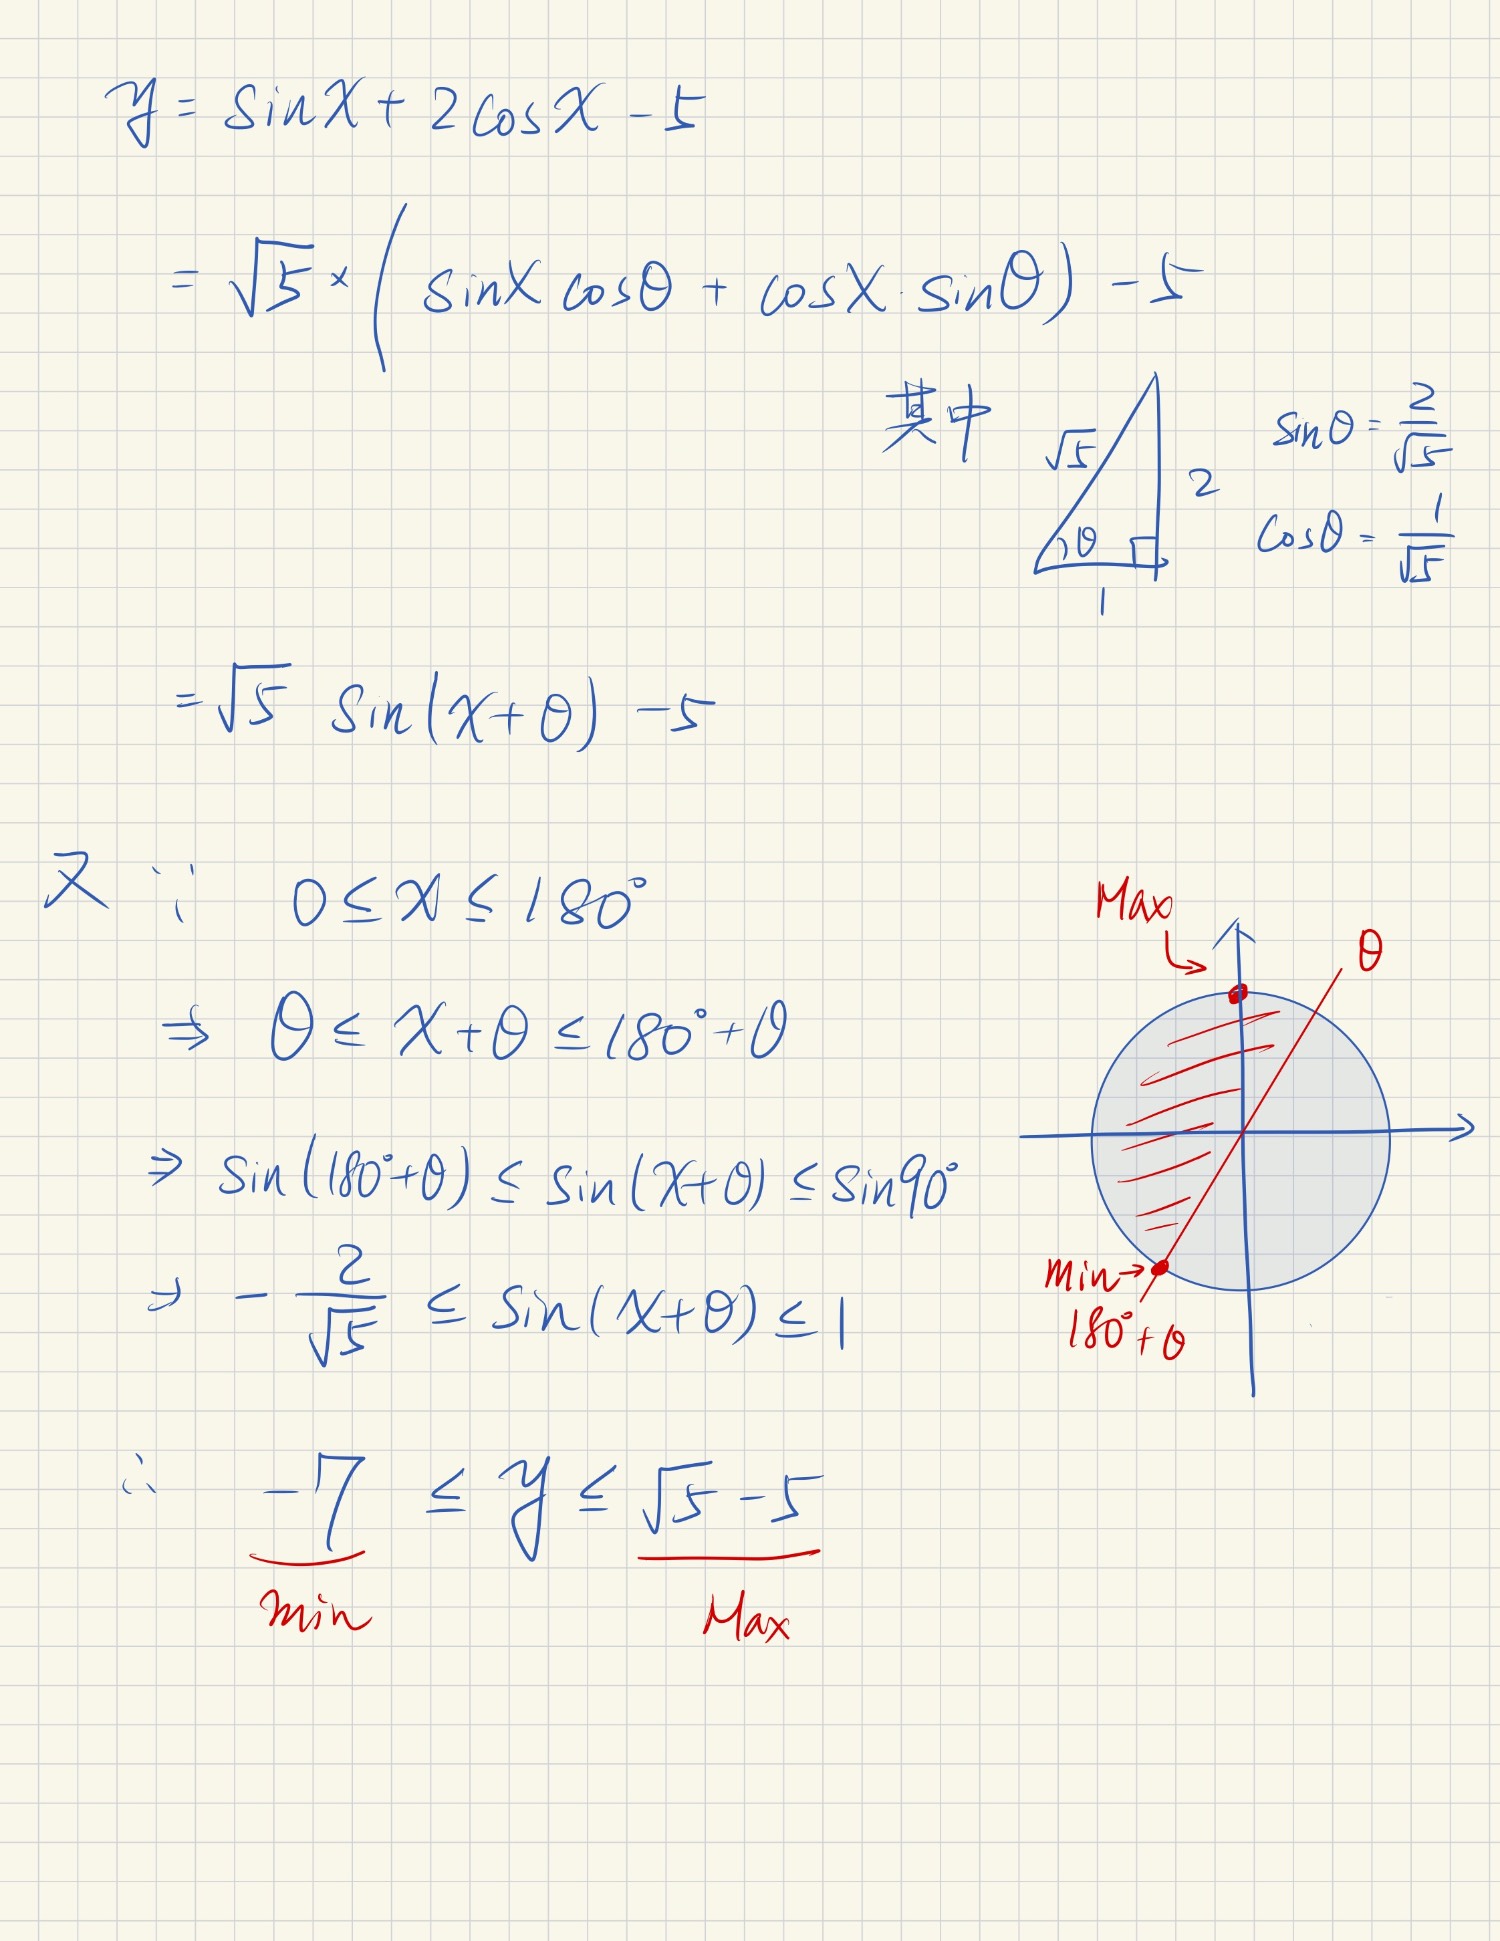 y = sinx + 2cosx - 5
= √5 × ( sinx cosθ + cosx · sinθ ) - 5
其中
√5
2
θ
1
sinθ = 2/√5
cosθ = 1/√5
= √5 sin(x+θ) - 5
又 ∵ 0 ≤ x ≤ 180°
⇒ θ ≤ x + θ ≤ 180° + θ
⇒ sin(180°+θ) ≤ sin(x+θ) ≤ sin90°
⇒ - 2/√5 ≤ sin(x+θ) ≤ 1
Max
θ
min →
180° + θ
∴ -7 ≤ y ≤ √5 - 5
min
Max